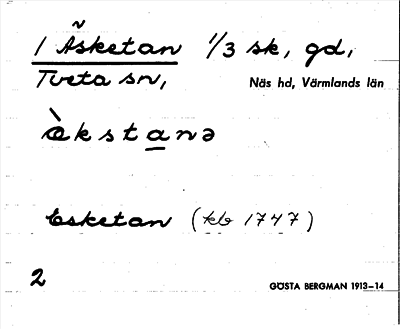 1 Ãsketan 1/3 sk, gd,
Tveta sn, Näs hd, Värmlands län
æ̀kstanə
Esketan (kb 1747)
2 GÖSTA BERGMAN 1913–14